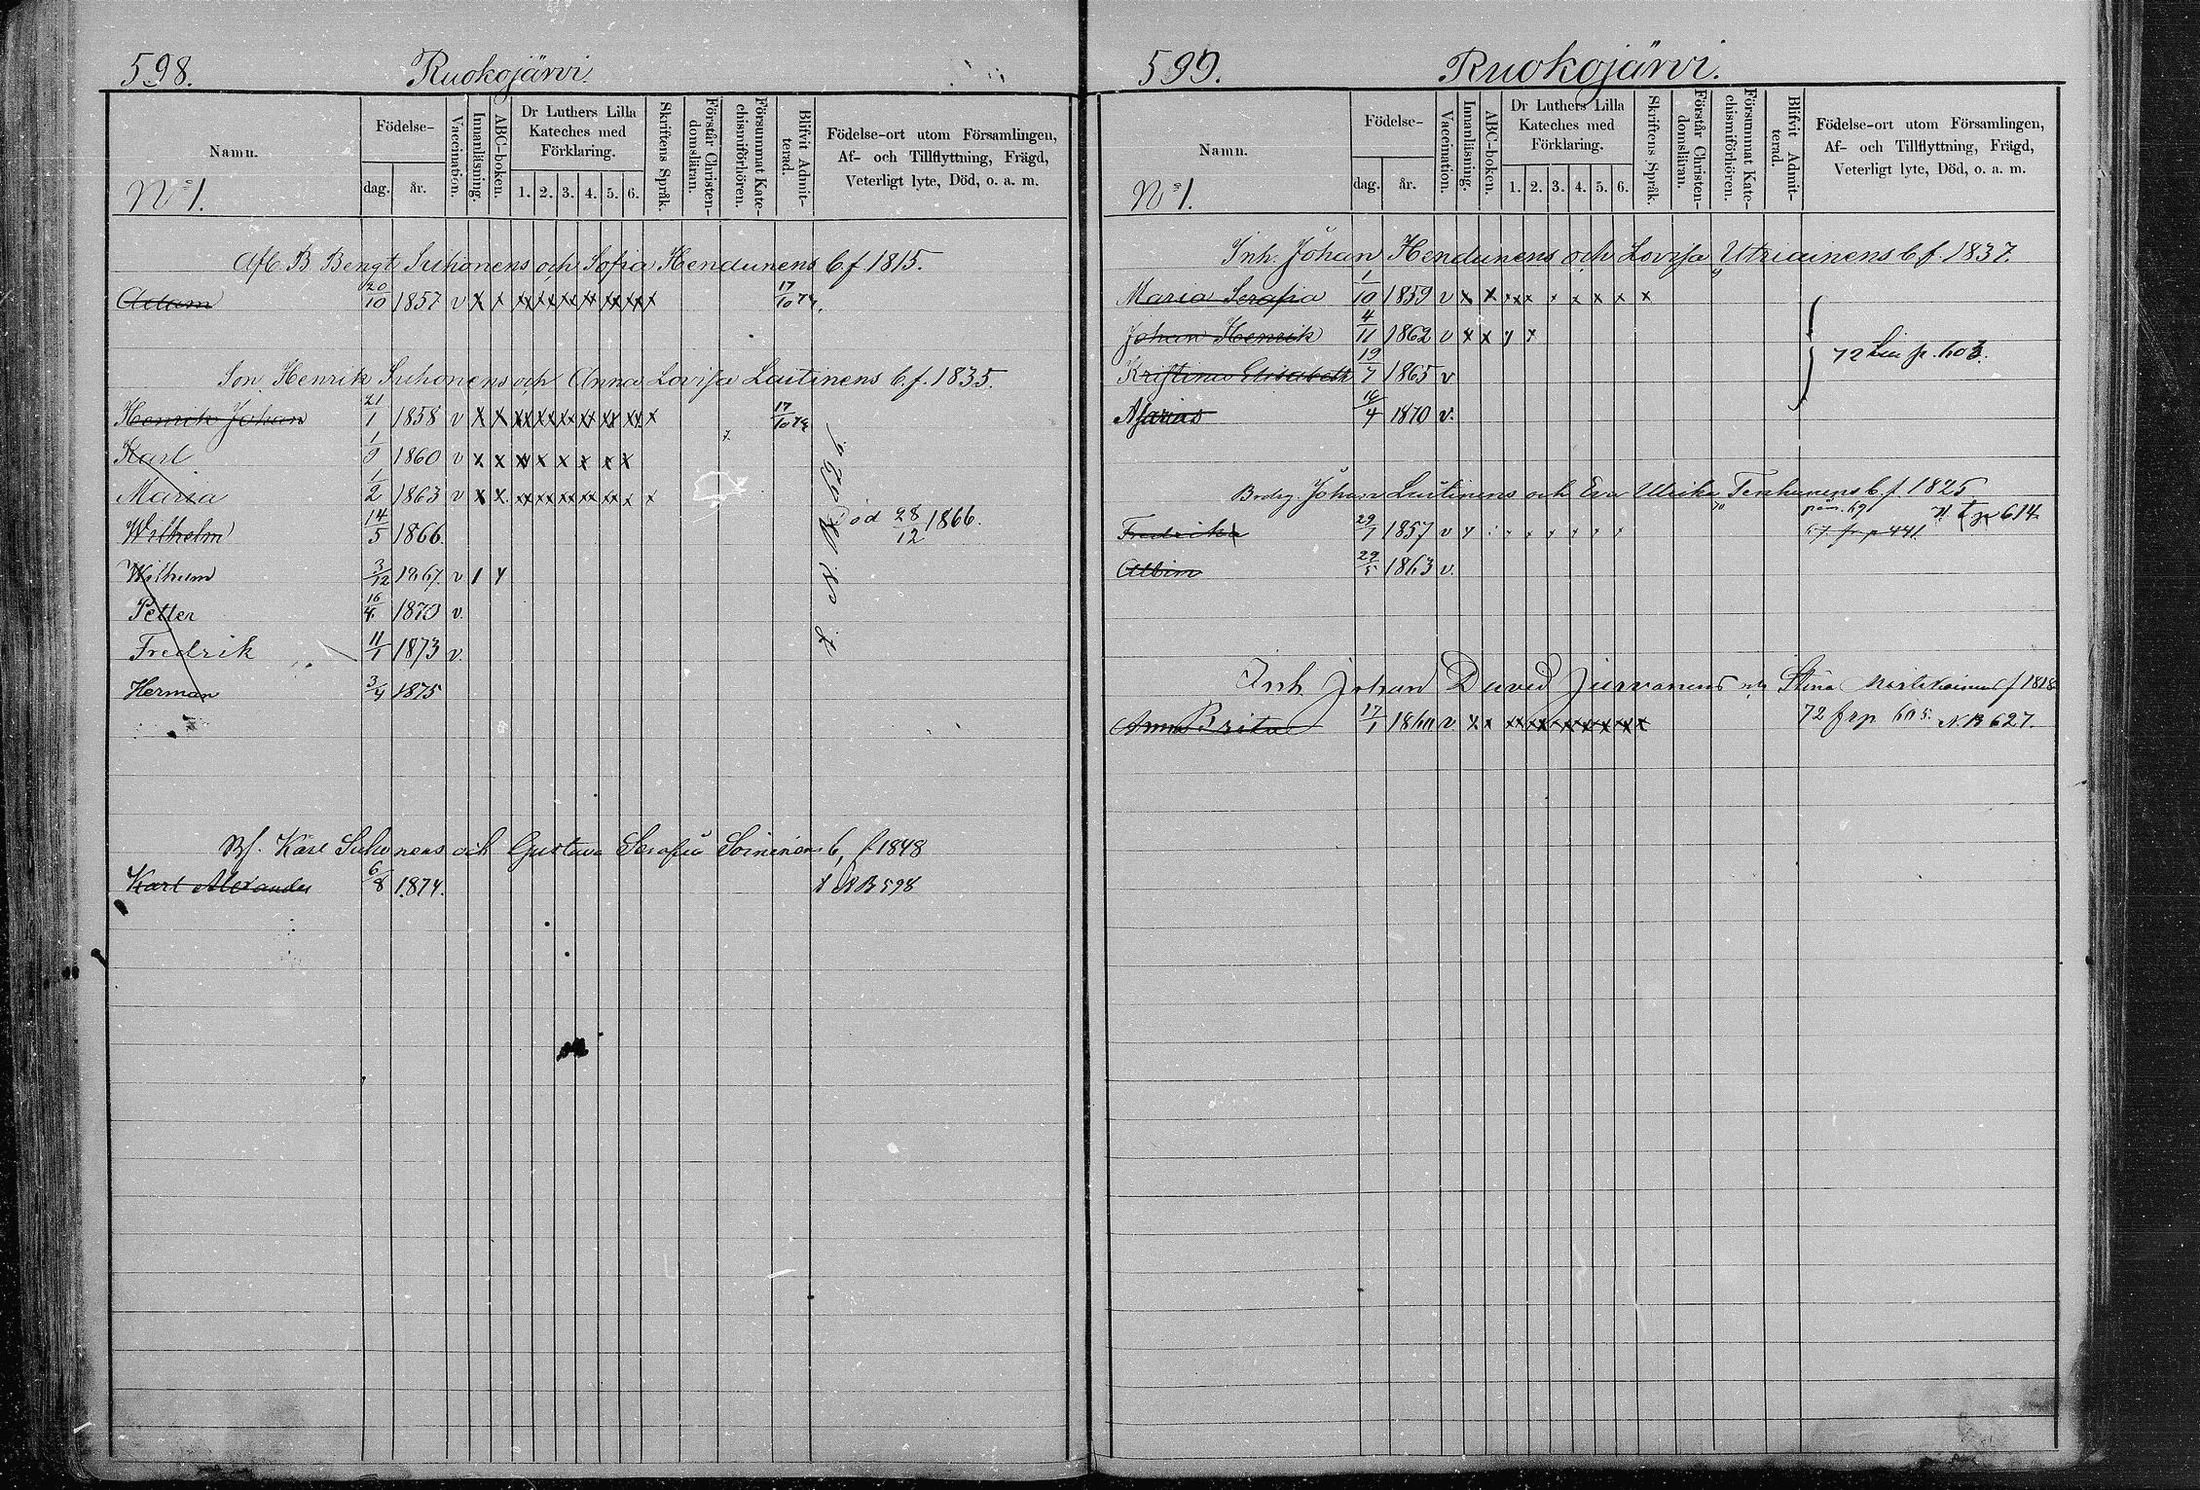 598. Ruokojärvi.
Namn.
Födelse-
dag. år.
Vaccination.
Innanläsning.
ABC-boken.
Dr Luthers Lilla Kateches med Förklaring.
1. 2. 3. 4. 5. 6.
Skriftens Språk.
Förstår Christendomsläran.
Försummat Katechismiförhören.
Blifvit Admitterad.
Födelse-ort utom Församlingen,
Af- och Tillflyttning, Frägd,
Veterligt lyte, Död, o. a. m.
No 1.
Afl. B Bengt Suhonens och Sofia Hendunens b f 1815.
Adam 20/10 1857 v x x x x x x x x x 17/10 74.
Son Henrik Suhonens och Anna Lovisa Lautinens b. f. 1835.
Henrik Johan 21/1 1858 v x x x x x x x x x 17/10 74
Karl 1/9 1860 v x x x x x x x x
Maria 1/2 1863 v x x x x x x x x x
Wilhelm 14/5 1866. Död 28/12 1866.
Wilhelm 3/12 1867. v
Petter 16/4 1870 v.
Fredrik 11/1 1873 v.
Herman 3/4 1875
Karl Suhonens och Gustava Serafia Soininens b. f 1848
Karl Alexander 6/8 1874. NB 598
599. Ruokojärvi.
Namn.
Födelse-
dag. år.
Vaccination.
Innanläsning.
ABC-boken.
Dr Luthers Lilla Kateches med Förklaring.
1. 2. 3. 4. 5. 6.
Skriftens Språk.
Förstår Christendomsläran.
Försummat Katechismiförhören.
Blifvit Admitterad.
Födelse-ort utom Församlingen,
Af- och Tillflyttning, Frägd,
Veterligt lyte, Död, o. a. m.
No 1.
Inh. Johan Hendunens och Lovisa Utriainens b f. 1837.
Maria Serafia 1/10 1859 v x x x x x x x x x
Johan Henrik 4/11 1862 v x x x x
Kristina Elisabeth 19/7 1865 v
Asarias 16/4 1870 v.
72 p. 603.
Johan Lautinens och Eva Ulrika Tenhunens b. f. 1825
Fredrika 29/7 1857 v fr p 441 p 614
Albin 29/5 1863 v.
Inh. Johan David Jurvanens Stina f 1818
Anna Brita 17/1 1860 v. x x x x x x x x x 72 fr p 605. NB 627.